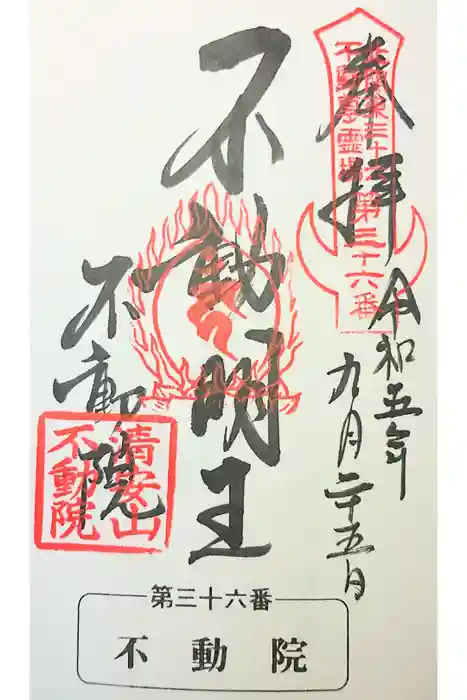 奉拝
北関東三十六
不動尊霊場第三十六番
令和五年
九月二十五日
不動明王
不動院
清安山
不動院
第三十六番
不動院